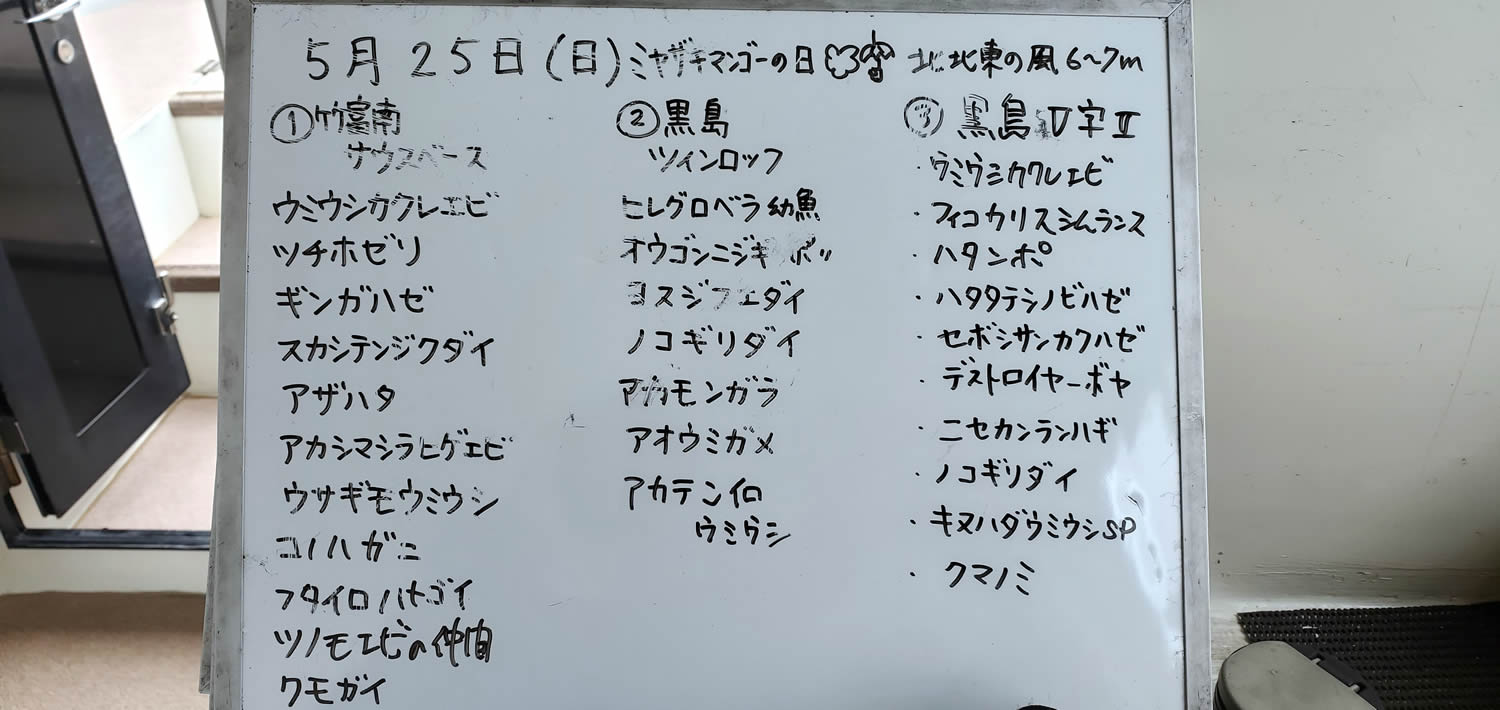 5月25日(日)ミヤザキマンゴーの日 北北東の風6~7m
①竹富南
サウスベース
ウミウシカクレエビ
ツチホゼリ
ギンガハゼ
スカシテンジクダイ
アザハタ
アカシマシラヒゲエビ
ウサギモウミウシ
コノハガニ
フタイロハナゴイ
ツノモエビの仲間
クモガイ
②黒島
ツインロック
ヒレグロベラ幼魚
オウゴンニジギンポッ
ヨスジフエダイ
ノコギリダイ
アカモンガラ
アオウミガメ
アカテンイロ
ウミウシ
③黒島V字Ⅱ
・ウミウシカクレエビ
・フィコカリスシムランス
・ハタンポ
・ハタタテシノビハゼ
・セボシサンカクハゼ
・デストロイヤーボヤ
・ニセカンランハギ
・ノコギリダイ
・キヌハダウミウシSP
・クマノミ